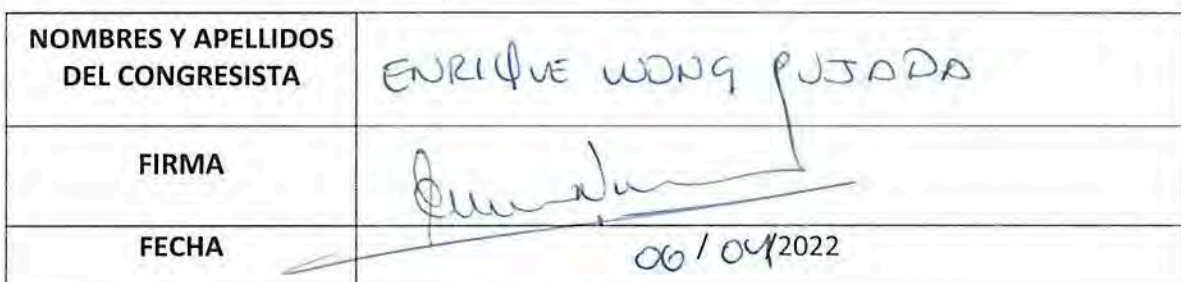 NOMBRES Y APELLIDOS
DEL CONGRESISTA
ENRIQUE WONG PUJADA
FIRMA
FECHA
06/04/2022